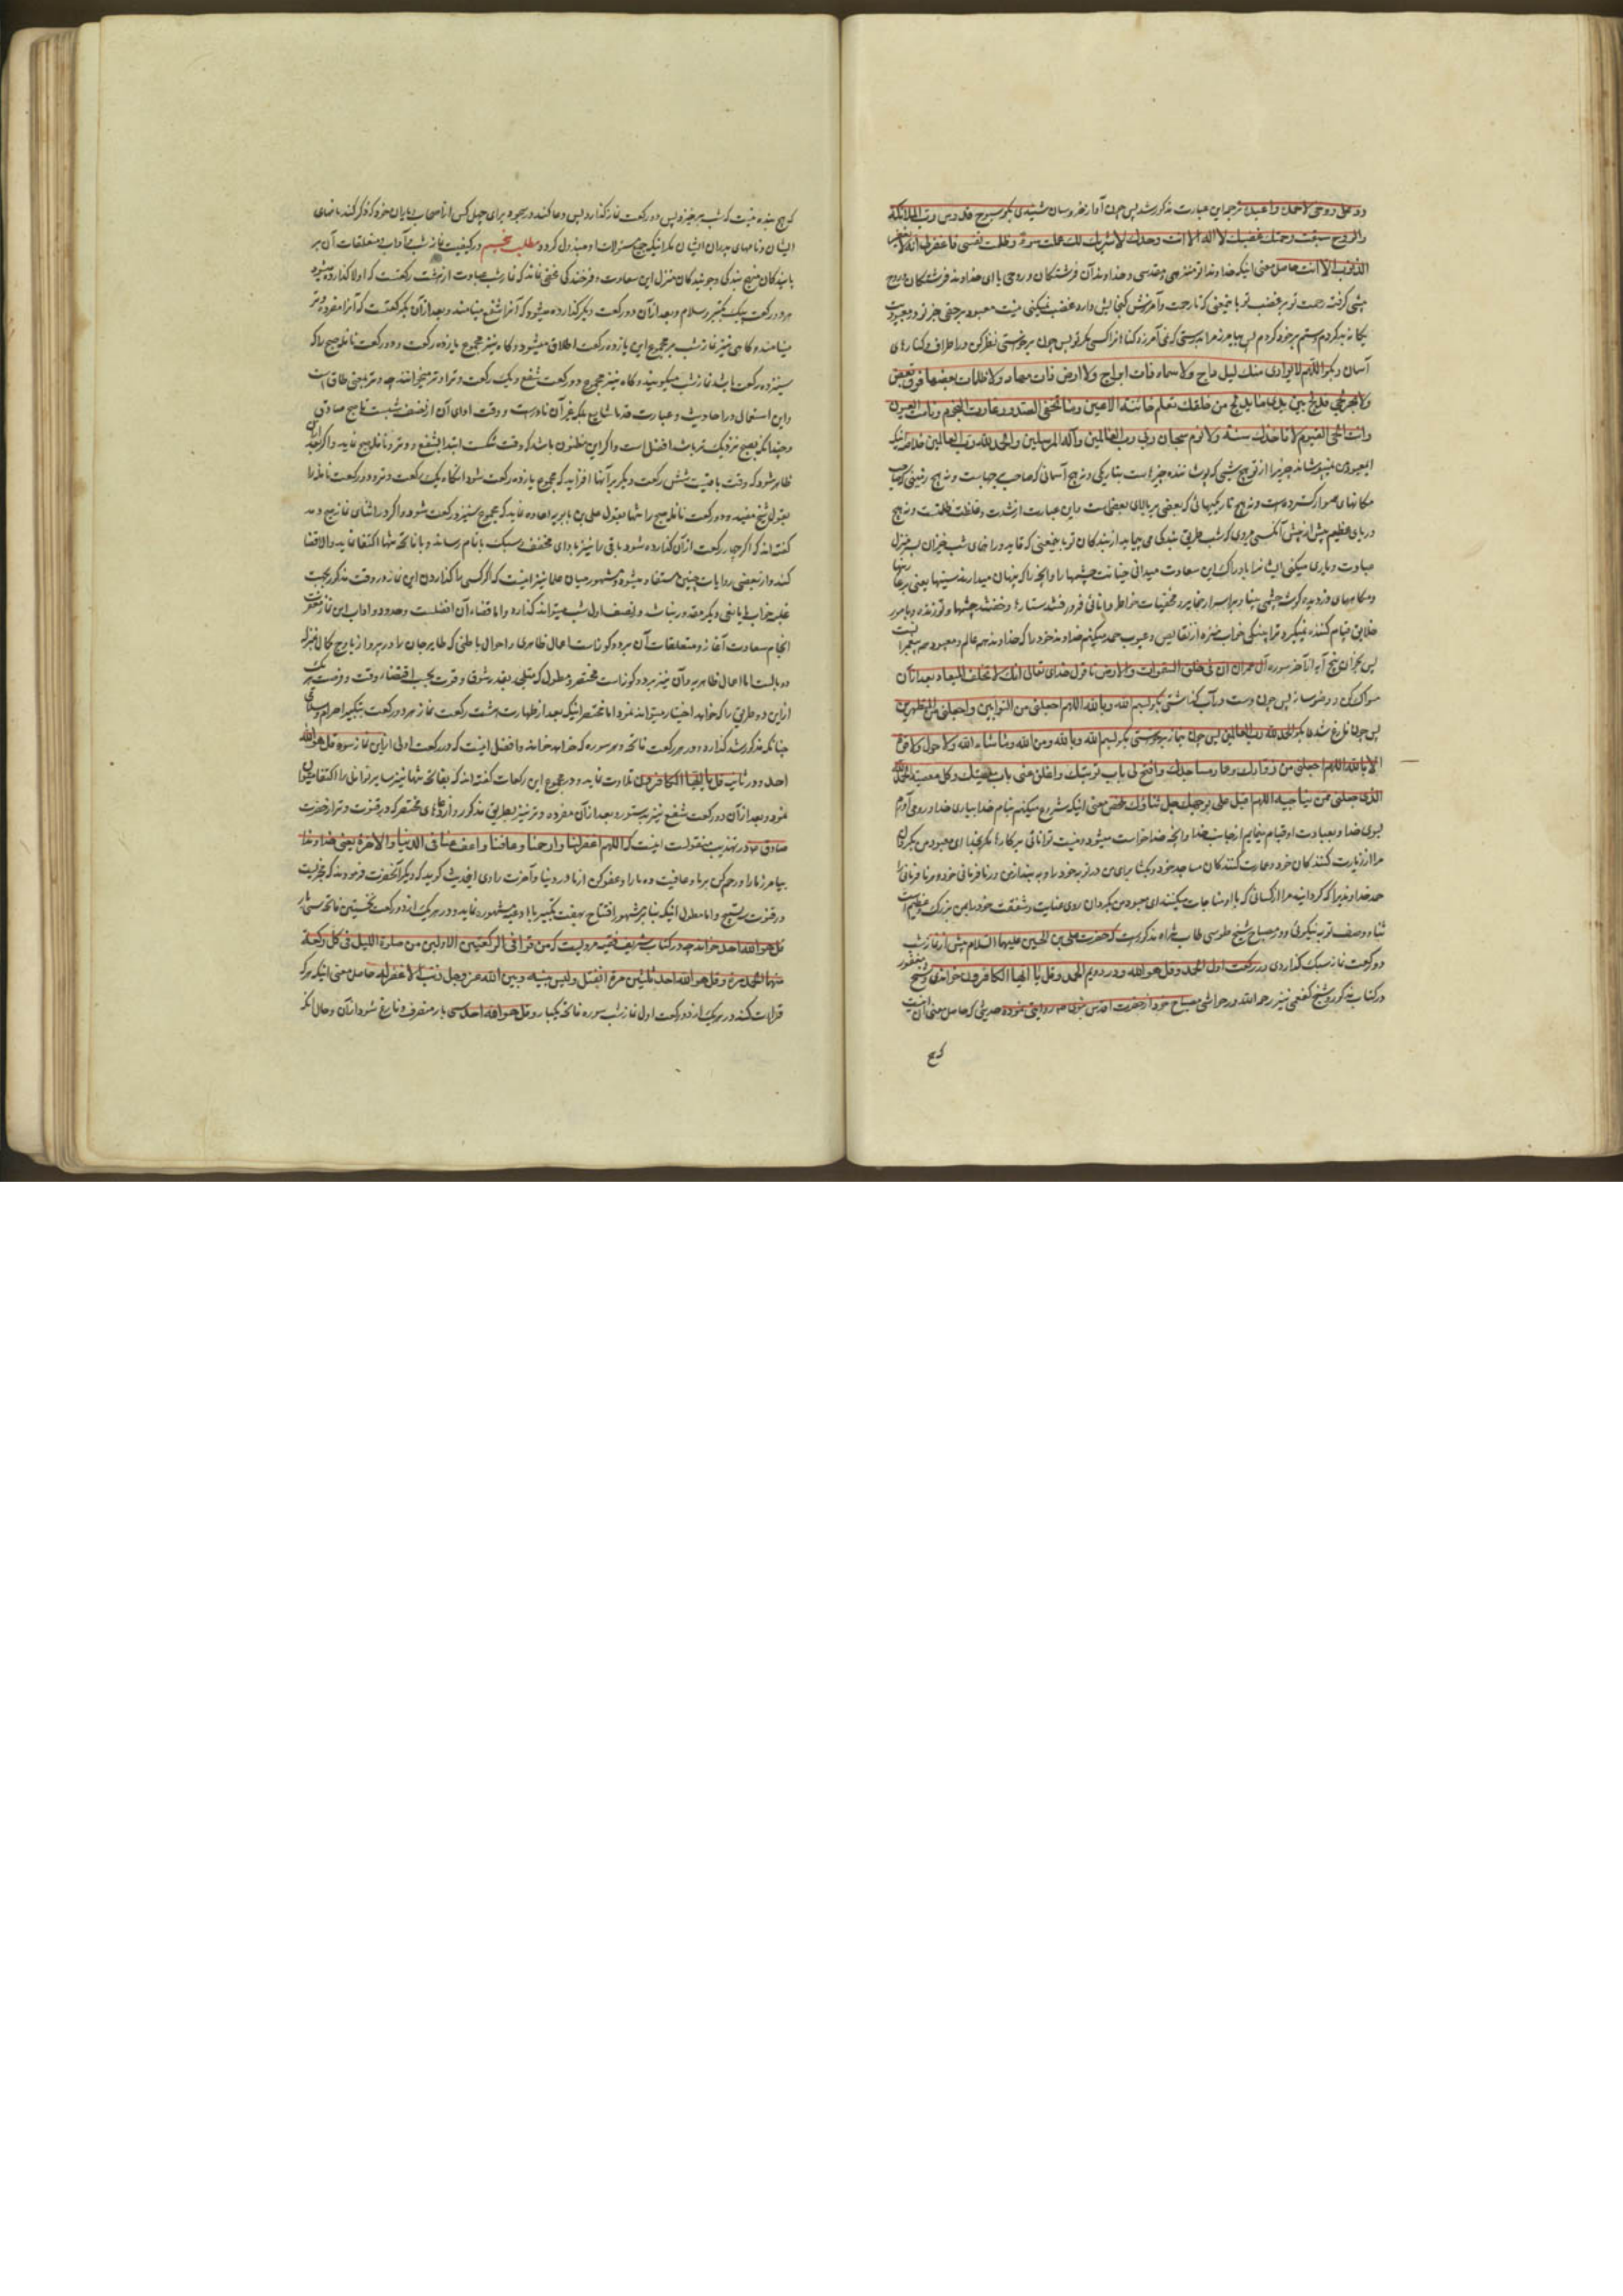 رد علی روحی لاحمده و اعبده ترجمه این عبارت مذکور شد پس چون آواز خروسان شنیدی بگو سبوح قدوس رب الملائکة
والروح سبقت رحمتك غضبك لا اله الا انت وحدك لا شریك لك عملت سوء وظلمت نفسی فاغفر لی انه لا یغفر
الذنوب الا انت حاصل معنی اینکه خداوندا تو منزهی و مقدسی و خداوند آن فرشتکان و روحی یا ای خداوند فرشتکان و روح
پیشی گرفته رحمت تو بر غضب تو
یکانه بد کردم و ستم بر خود کردم پس بیامرز مرا بدرستی که نمی آمرزد کناهانرا کسی مگر تو پس چون برخواستی نظر کن در اطراف و کنارهای
آسمان و بگو اللهم لا یواری منك لیل داج ولا سماء ذات ابراج ولا ارض ذات مهاد ولا ظلمات بعضها فوق بعض
ولا بحر لجی تدلج بین یدی المدلج من خلقك تعلم خائنة الاعین وما تخفی الصدور غارت النجوم ونامت العیون
وانت الحی القیوم لا تاخذك سنة ولا نوم سبحان ربی رب العالمین واله المرسلین والحمد لله رب العالمین خلاصه اینکه
مکانهای هموار کسترده است و نه هیچ تاریکیهائی که بعضی بر بالای بعضی است و این عبارت از شدت و غلظت ظلمتست و نه هیچ
عبادت و یاری میکنی ایشانرا بادراک این سعادت میدانی خیانت چشمها را و آنچه را که پنهان میدارند سینها یعنی
خلایق قیام کننده نمیگیرد ترا پینکی و خواب منزه از نقایص و عیوب حمد میکنم خداوند خود را که خداوند همه عالم و معبود همه پیغمبرانست
پس بخوان پنج آیه از آخر سوره آل عمران ان فی خلق السموات والارض تا قول خدای تعالی انك لا تخلف المیعاد و بعد از آن
مسواک کن و وضو بساز پس چون دست در آب گذاشتی بگو بسم الله وبالله اللهم اجعلنی من التوابین واجعلنی من المتطهرین
پس چون فارغ شدی بگو الحمد لله رب العالمین پس چون بنماز برخواستی بگو بسم الله وبالله ومن الله وما شاء الله ولا حول ولا قوة
الا بالله اللهم اجعلنی من زوارك وعمار مساجدك وافتح لی باب توبتك واغلق عنی باب معصیتك وکل معصیة الحمد لله
الذی جعلنی ممن یناجیه اللهم اقبل علی بوجهك جل ثناؤك ملخص معنی اینکه شروع میکنم بنام خدا و بیاری خدا و روی آورم
بسوی خدا و بعبادت او قیام مینمایم از جانب خدا و آنچه خدا خواست میشود و نیست توانائی بر کارها مگر بخدا ای معبود من بگردان
مرا از زیارت کنندکان خود و عمارت کنندکان مساجد خود و بکشا برای من در توبه خود را و به بند از من در نافرمانی خود و هر نافرمانی را
حمد خداوندیرا که کردانید مرا از کسانی که با او مناجات میکنند ای معبود من بگردان روی عنایت و شفقت خود را بمن بزرک و عظیم است
ثناء و وصف تو به نیکوئی و در مصباح شیخ طوسی طاب ثراه مذکورست که حضرت علی بن الحسین علیهما السلام پیش از نماز شب
دو رکعت نماز سبک گذاردی در رکعت اول الحمد وقل هو الله ودر دویم الحمد وقل یا ایها الکافرون خواندی و شیخ
در کتاب مذکور و شیخ کفعمی نیز رحمه الله در حواشی مصباح خود از حضرت اقدس نبوی ص روایتی نموده حدیثی که حاصل معنی آن اینست
که هیچ
که هیچ بنده نیست که شب برخیزد پس دو رکعت نماز کذارد پس دعا کند در سجود برای چهل کس از اصحاب
ایشان و نامهای پدران ایشان مگر اینکه جمیع مسئولات او مبذول گردد مطلب پنجم در کیفیت نماز شب و آداب و متعلقات آن بر
هر دو رکعت بیک تکبیر و سلام و بعد از آن دو رکعت دیگر کذارده میشود که آنرا شفع مینامند و بعد از آن یکرکعتست که آنرا مفرده وتر
مینامند و کاهی نیز نماز شب بر مجموع این یازده رکعت اطلاق میشود و کاه نیز مجموع یازده رکعت و دو رکعت نافله صبح را که
سیزده رکعت باشد نماز شب میگویند و کاه نیز مجموع دو رکعت شفع و یک رکعت وتر را وتر میخوانند چه وتر بمعنی طاق است
و این استعمال در احادیث و عبارت قدما شایع بلکه غیر آن نادرست و وقت ادای آن از نصف شبست تا صبح صادق
و چندانکه بصبح نزدیک تر باشد افضل است و اگر این مظنون باشد که وقت تنکست ابتدا بشفع و وتر و نافله صبح نماید و اگر بعد
ظاهر شود که وقت باقیست شش رکعت دیگر بر آنها افزاید که مجموع یازده رکعت شود آنکاه یک رکعت وتر و دو رکعت نافله را
بقول شیخ مفید و دو رکعت نافله صبح را تنها بقول علی بن بابویه اعاده نماید که مجموع سیزده رکعت شود و اگر در اثنای نماز صبح دمد
گفته اند که اگر چهار رکعت از آن کذارده شود باقی را نیز بادای مخفف و سبک باتمام رساند و با فاتحه تنها اکتفا نماید والا قضا
کند و از بعضی روایات چنین مستفاد میشود و مشهور میان علما نیز اینست که اگر کسی را گذاردن این نماز در وقت مذکور بجهت
غلبه خواب یا مانعی دیگر مقدور نباشد در نصف اول شب میتواند کذارد و اما قضاء آن افضلست وحدود و آداب این نماز
انجام سعادت آغاز و متعلقات آن بر دو کونه است اعمال ظاهری و احوال باطنی که طایر جان را در پرواز باوج کمال بمنزله
دو بالست اما اعمال ظاهریه و آن نیز بر دو کونه است مختصر و مطول که متهجد بقدر شوق و قوت بحسب اقتضاء وقت و فرصت هر یک
از این دو طریق را که خواهد اختیار میتواند نمود اما مختصر اینکه بعد از طهارت هشت رکعت نماز هر دو رکعت بتکبیر احرام و سلامی
چنانکه مذکور شد گذارد و در هر رکعت فاتحه و هر سوره که خواهد خواند و افضل اینست که در رکعت اولی از این نماز سوره قل هو الله
احد و در ثانیه قل یا ایها الکافرون تلاوت نماید و در مجموع این رکعات گفته اند که بفاتحه تنها نیز مانند سایر نوافل اکتفا میتوان
نمود و بعد از آن دو رکعت شفع نیز بدستور و بعد از آن مفرده وتر نیز بطریق مذکور و از دعاهای مختصر که در قنوت وتر از حضرت
صادق ع در تهذیب منقولست اینست که اللهم اغفر لنا وارحمنا وعافنا واعف عنا فی الدنیا والاخرة یعنی خداوندا
بیامرز ما را و رحم کن بر ما و عافیت ده ما را و عفو کن از ما در دنیا و آخرت راوی این حدیث گوید که دیگر آنحضرت فرمودند که مجزیست
در قنوت سه تسبیح و اما مطول اینکه بنا بر مشهور افتتاح بهفت تکبیر با ادعیه مشهوره نماید و در هر یک از دو رکعت نخستین فاتحه و سی بار
قل هو الله احد خواند چه در کتاب شریف فقیه مرویست که من قرأ فی الرکعتین الاولیین من صلوة اللیل فی کل رکعة
منهما الحمد مرة وقل هو الله احد ثلثین مرة انفتل ولیس بینه وبین الله عز وجل ذنب الا غفر له حاصل معنی اینکه هر که
قراءت کند در هر یک از دو رکعت اول نماز شب سوره فاتحه یکبار و قل هو الله احد سی بار منصرف و فارغ شود از آن و حال آنکه